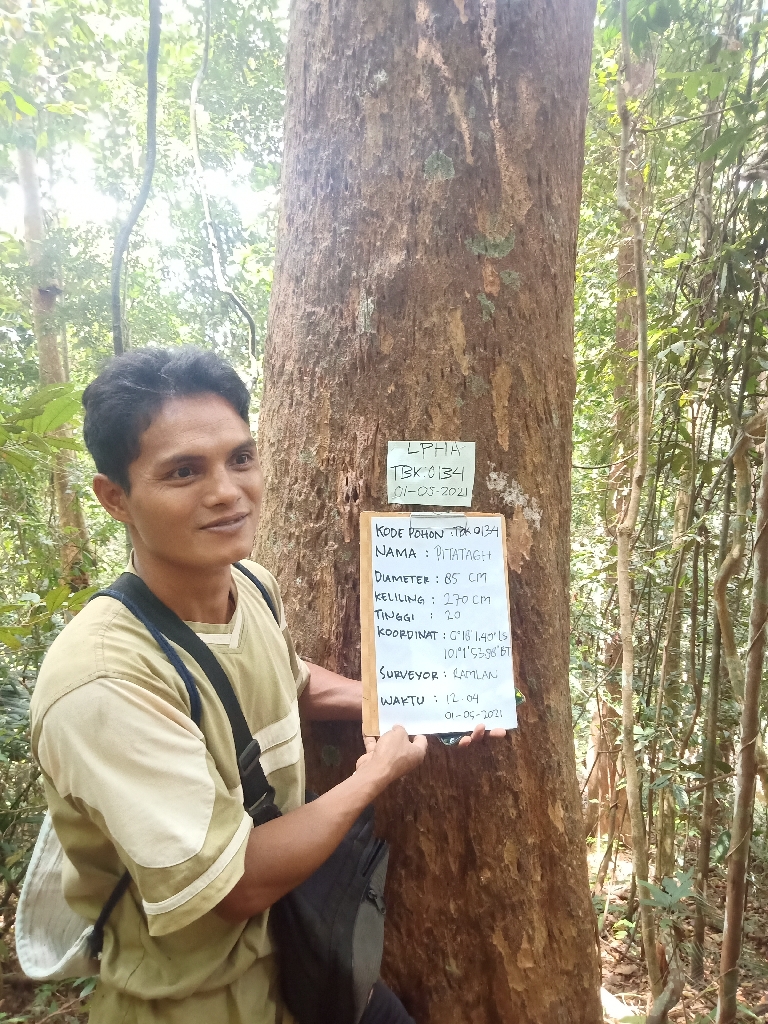 LPHA
TBK.0134
01-05-2021
KODE POHON : TBK 0134
NAMA : PITATAGH
DIAMETER : 85 CM
KELILING : 270 CM
TINGGI : 20
KOORDINAT : 0°18'1.40"LS
101°1'53.98"BT
SURVEYOR : RAMLAN
WAKTU : 12-04
01-05-2021